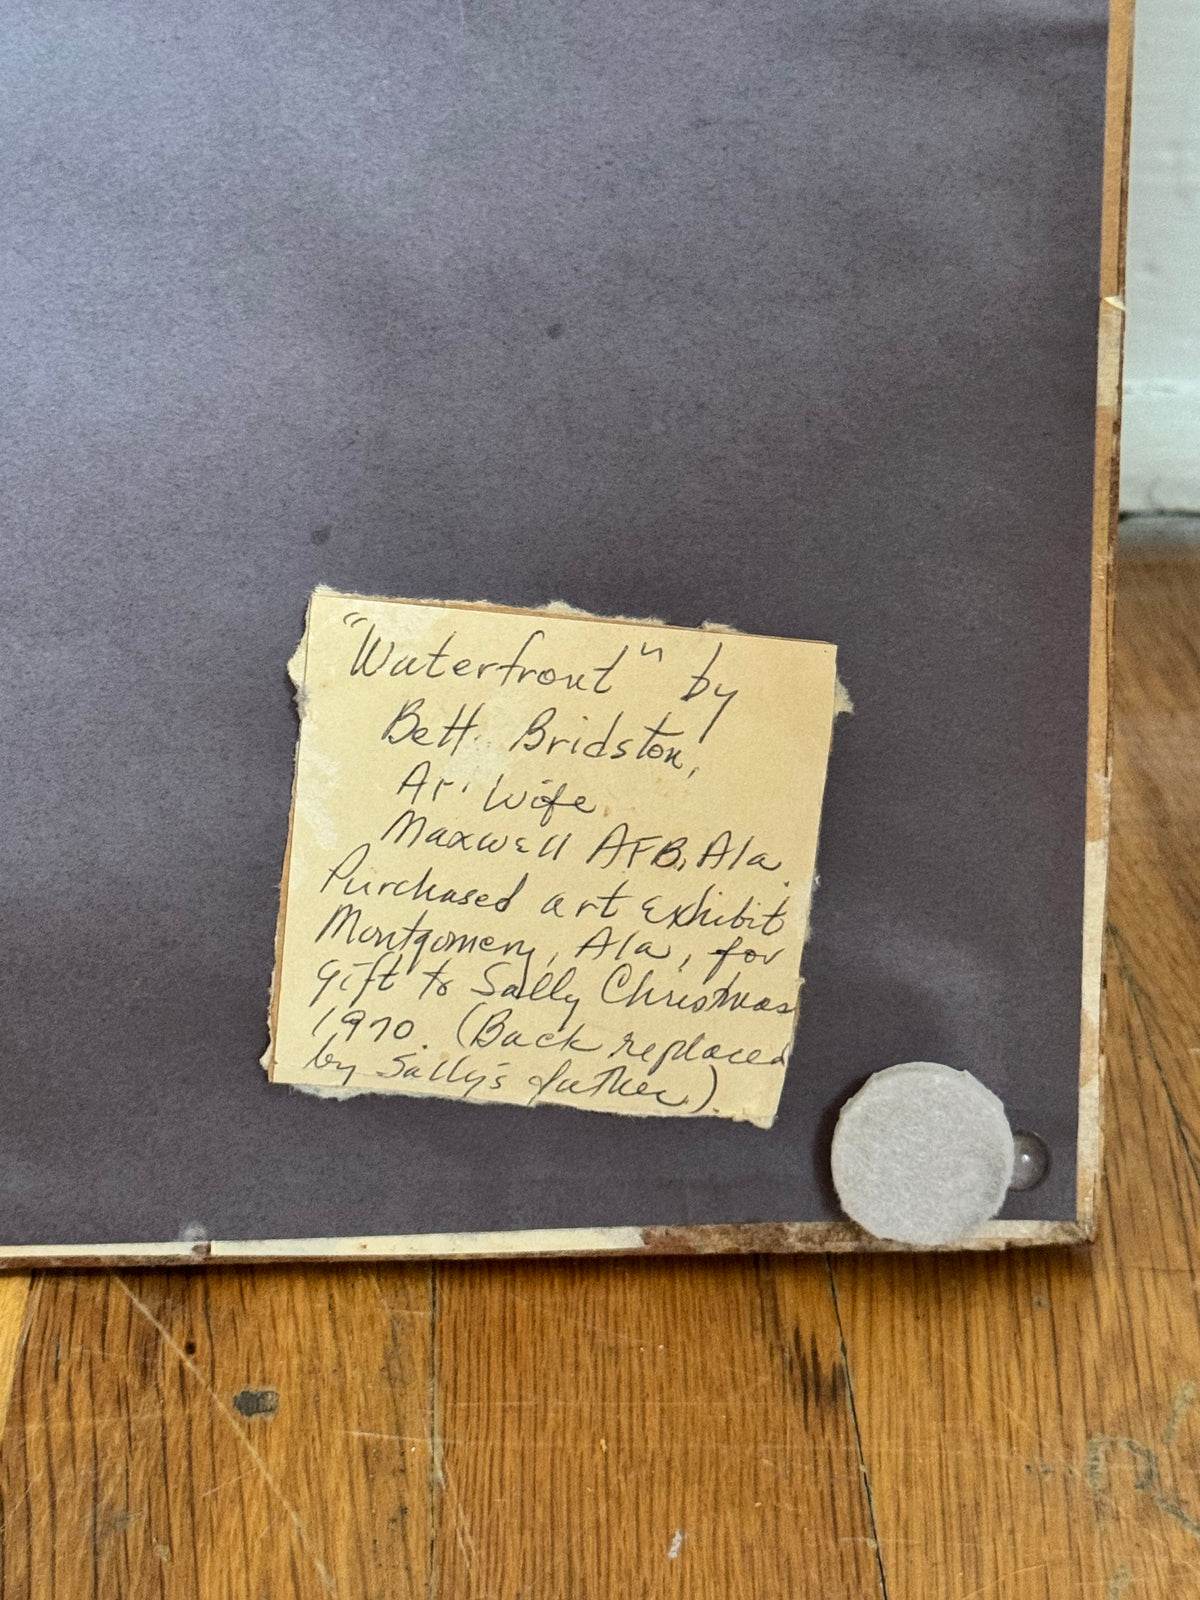 "Waterfront" by
Bett Bridston,
Ar. Wife
Maxwell AFB, Ala.
Purchased art exhibit
Montgomery, Ala, for
gift to Sally Christmas
1970. (Back replaced
by Sally's father).